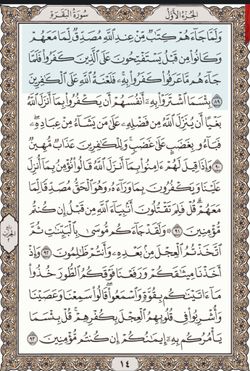 الجُزْءُ الأَوَّلُ
سُورَةُ البَقَرَةِ
وَلَمَّا جَآءَهُمْ كِتَٰبٌ مِّنْ عِندِ ٱللَّهِ مُصَدِّقٌ لِّمَا مَعَهُمْ
وَكَانُوا۟ مِن قَبْلُ يَسْتَفْتِحُونَ عَلَى ٱلَّذِينَ كَفَرُوا۟ فَلَمَّا
جَآءَهُم مَّا عَرَفُوا۟ كَفَرُوا۟ بِهِۦ فَلَعْنَةُ ٱللَّهِ عَلَى ٱلْكَٰفِرِينَ
٨٩ بِئْسَمَا ٱشْتَرَوْا۟ بِهِۦٓ أَنفُسَهُمْ أَن يَكْفُرُوا۟ بِمَآ أَنزَلَ ٱللَّهُ
بَغْيًا أَن يُنَزِّلَ ٱللَّهُ مِن فَضْلِهِۦ عَلَىٰ مَن يَشَآءُ مِنْ عِبَادِهِۦ
فَبَآءُو بِغَضَبٍ عَلَىٰ غَضَبٍ وَلِلْكَٰفِرِينَ عَذَابٌ مُّهِينٌ
٩٠ وَإِذَا قِيلَ لَهُمْ ءَامِنُوا۟ بِمَآ أَنزَلَ ٱللَّهُ قَالُوا۟ نُؤْمِنُ بِمَآ أُنزِلَ
عَلَيْنَا وَيَكْفُرُونَ بِمَا وَرَآءَهُۥ وَهُوَ ٱلْحَقُّ مُصَدِّقًا لِّمَا
مَعَهُمْ قُلْ فَلِمَ تَقْتُلُونَ أَنۢبِيَآءَ ٱللَّهِ مِن قَبْلُ إِن كُنتُم
مُّؤْمِنِينَ ٩١ وَلَقَدْ جَآءَكُم مُّوسَىٰ بِٱلْبَيِّنَٰتِ ثُمَّ
ٱتَّخَذْتُمُ ٱلْعِجْلَ مِنۢ بَعْدِهِۦ وَأَنتُمْ ظَٰلِمُونَ ٩٢ وَإِذْ
أَخَذْنَا مِيثَٰقَكُمْ وَرَفَعْنَا فَوْقَكُمُ ٱلطُّورَ خُذُوا۟
مَآ ءَاتَيْنَٰكُم بِقُوَّةٍ وَٱسْمَعُوا۟ قَالُوا۟ سَمِعْنَا وَعَصَيْنَا
وَأُشْرِبُوا۟ فِى قُلُوبِهِمُ ٱلْعِجْلَ بِكُفْرِهِمْ قُلْ بِئْسَمَا
يَأْمُرُكُم بِهِۦٓ إِيمَٰنُكُمْ إِن كُنتُم مُّؤْمِنِينَ ٩٣
١٤